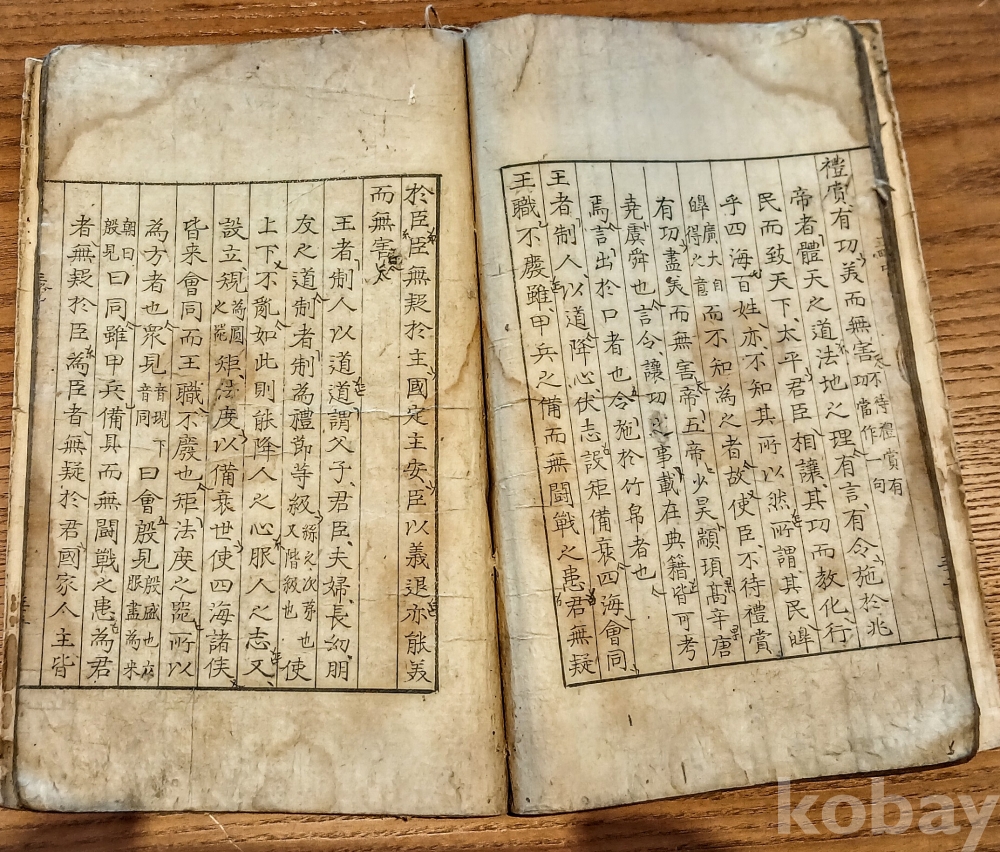 禮賞有功美而無害功當作一句不待禮賞有
帝者體天之道法地之理有言有令施於兆
民而致天下太平君臣相讓其功而敎化行
乎四海百姓亦不知其所以然所謂其民皡
皡廣大自得之意而不知為之者故使臣不待禮賞
有功盡美而無害帝五帝少昊顓頊髙辛唐
堯虞舜也言令讓功之事載在典籍皆可考
焉言出於口者也令施於竹帛者也
王者制人以道降心伏志設矩備衰四海會同
王職不廢雖甲兵之備而無鬪戰之患君無疑
於臣臣無疑於主國定主安臣以義退亦能義
而無害
王者制人以道道謂父子君臣夫婦長幼朋
友之道制者制為禮節等級絲之次第也又階級也使
上下不亂如此則能降人之心服人之志又
設立規為圓之器矩法度以備衰世使四海諸侯
皆来會同而王職不廢也矩法度之器所以
為方者也衆見音現下音同曰會殷見殷盛也六服盡為来
朝曰殷見曰同雖甲兵備具而無鬪戰之患為君
者無疑於臣為臣者無疑於君國家人主皆
kobay